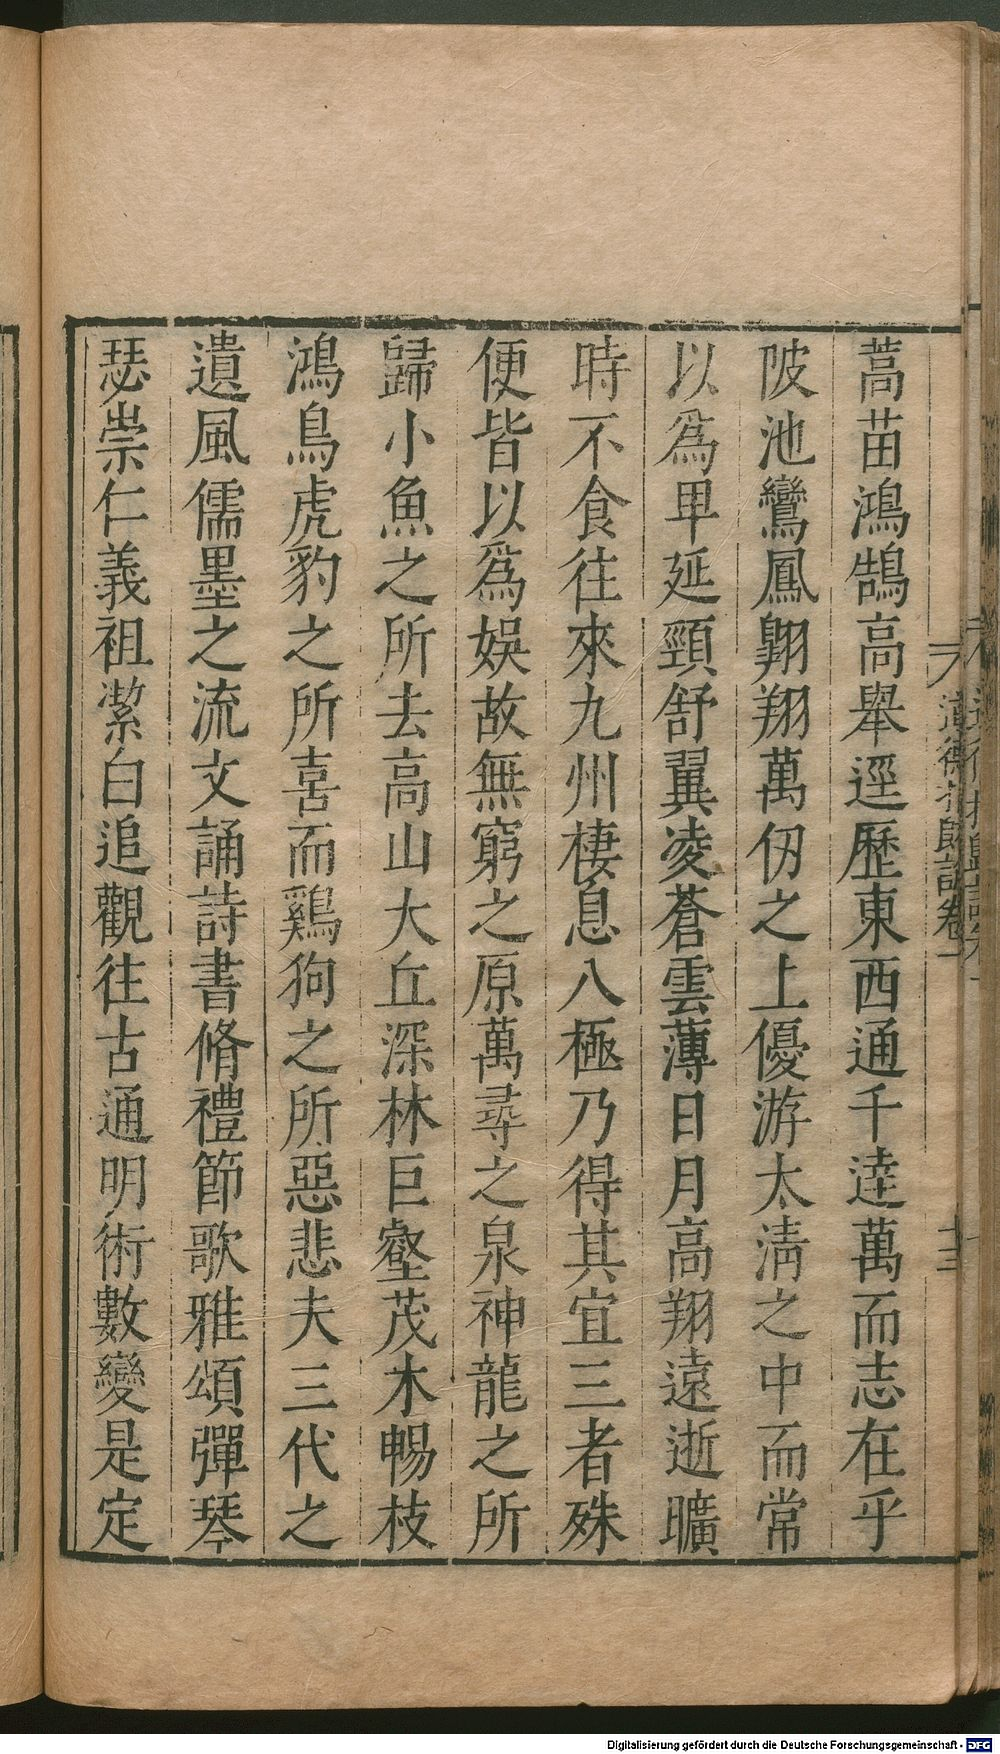 蒿苗鴻鵠高舉逕歷東西通千逵萬而志在乎
陂池鸞鳳翱翔萬仞之上優游太清之中而常
以爲卑延頸舒翼凌蒼雲薄日月高翔遠逝曠
時不食往來九州棲息八極乃得其宜三者殊
便皆以爲娛故無窮之原萬尋之泉神龍之所
歸小魚之所去高山大丘深林巨壑茂木暢枝
鴻鳥虎豹之所喜而鷄狗之所惡悲夫三代之
遺風儒墨之流文誦詩書脩禮節歌雅頌彈琴
瑟崇仁義祖潔白追觀往古通明術數變是定
Digitalisierung gefördert durch die Deutsche Forschungsgemeinschaft - DFG